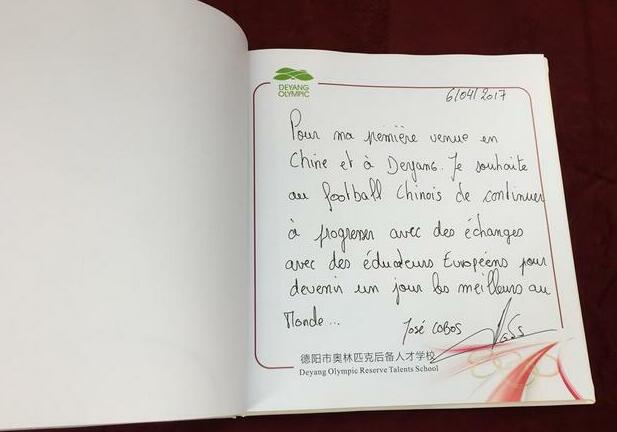 DEYANG
OLYMPIC
6/04/2017
Pour ma première venue en
Chine et à Deyang. Je souhaite
au football Chinois de continuer
à progresser avec des échanges
avec des éducateurs Européens pour
devenir un jour les meilleurs au
Monde...
José COBOS
德阳市奥林匹克后备人才学校
Deyang Olympic Reserve Talents School